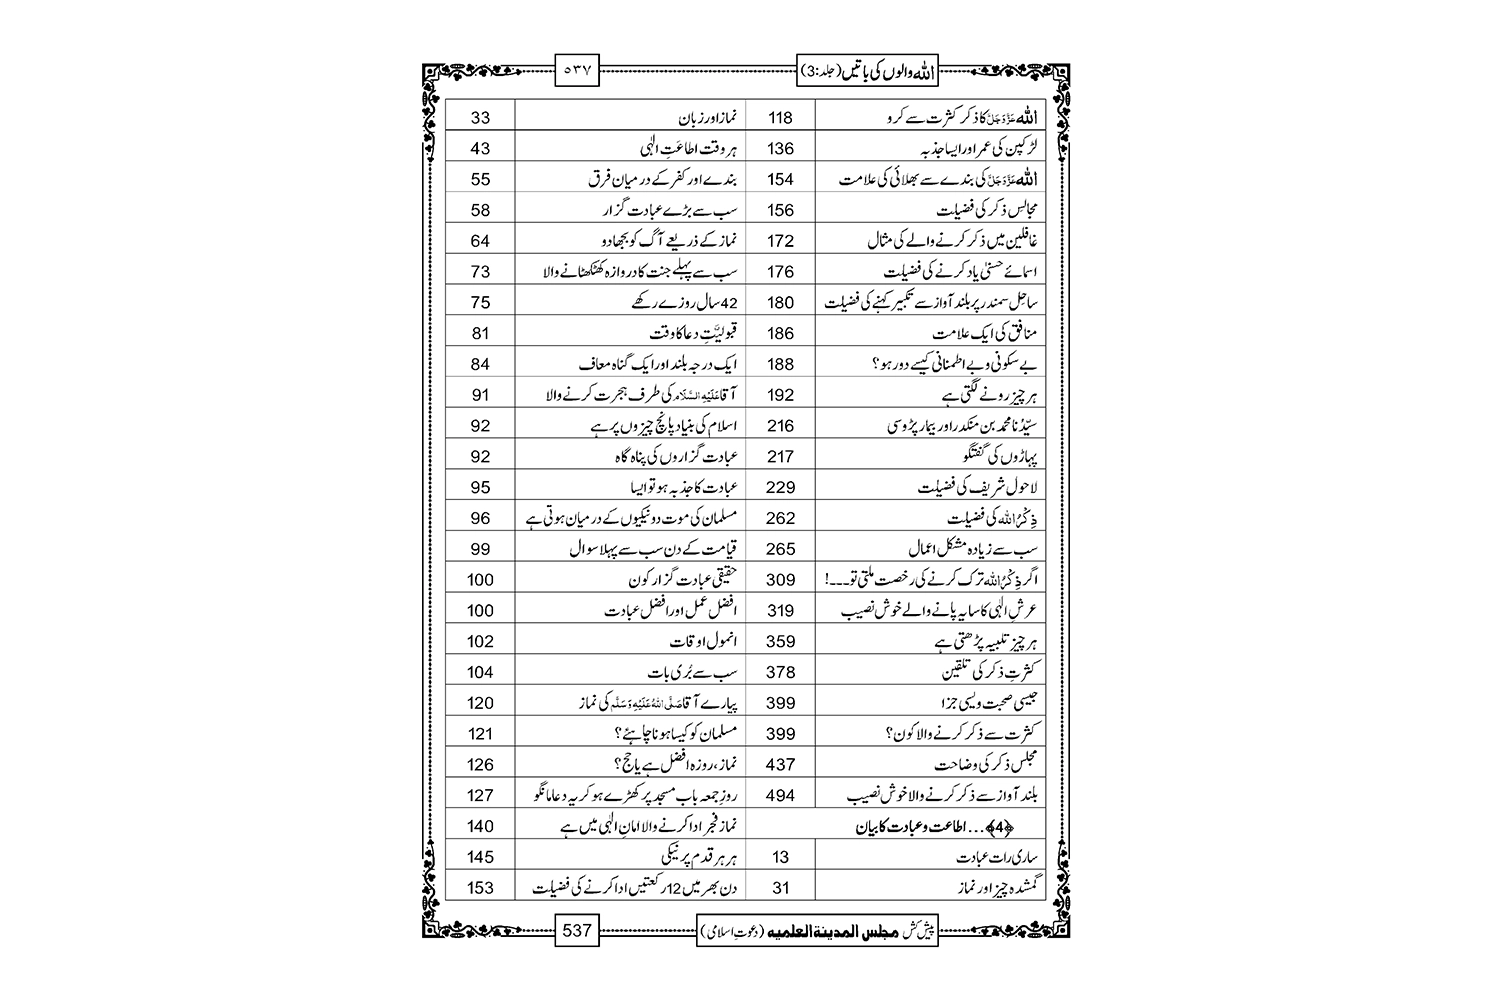 اللہ والوں کی باتیں (جلد:3) ۵۳۷
اللہ عَزَّوَجَلَّ کا ذکر کثرت سے کرو 118 نماز اور زبان 33
لڑکپن کی عمر اور ایسا جذبہ 136 ہر وقت اطاعَتِ الٰہی 43
اللہ عَزَّوَجَلَّ کی بندے سے بھلائی کی علامت 154 بندے اور کفر کے درمیان فرق 55
مجالسِ ذکر کی فضیلت 156 سب سے بڑے عبادت گزار 58
غافلین میں ذکر کرنے والے کی مثال 172 نماز کے ذریعے آگ کو بجھادو 64
اسمائے حسنیٰ یاد کرنے کی فضیلت 176 سب سے پہلے جنت کا دروازہ کھٹکھٹانے والا 73
ساحِل سمندر پر بلند آواز سے تکبیر کہنے کی فضیلت 180 42سال روزے رکھے 75
منافق کی ایک علامت 186 قبولیَّتِ دعا کا وقت 81
بے سکونی و بے اطمنانی کیسے دور ہو؟ 188 ایک درجہ بلند اور ایک گناہ معاف 84
ہر چیز رونے لگتی ہے 192 آقا عَلَیْہِ السَّلَام کی طرف ہجرت کرنے والا 91
سیِّدُنا محمد بن منکدر اور بیمار پڑوسی 216 اسلام کی بنیاد پانچ چیزوں پر ہے 92
پہاڑوں کی گفتگو 217 عبادت گزاروں کی پناہ گاہ 92
لاحول شریف کی فضیلت 229 عبادت کا جذبہ ہو تو ایسا 95
ذِکْرُاللہ کی فضیلت 262 مسلمان کی موت دو نیکیوں کے درمیان ہوتی ہے 96
سب سے زیادہ مشکل اعمال 265 قیامت کے دن سب سے پہلا سوال 99
اگر ذِکْرُاللہ ترک کرنے کی رخصت ملتی تو۔۔۔! 309 حقیقی عبادت گزار کون 100
عرشِ الٰہی کا سایہ پانے والے خوش نصیب 319 افضل عمل اور افضل عبادت 100
ہر چیز تلبیہ پڑھتی ہے 359 انمول اوقات 102
کثرتِ ذکر کی تلقین 378 سب سے بُری بات 104
جیسی صحبت ویسی جزا 399 پیارے آقا صَلَّی اللہُ عَلَیْہِ وَسَلَّم کی نماز 120
کثرت سے ذکر کرنے والا کون؟ 399 مسلمان کو کیسا ہونا چاہئے؟ 121
مجلس ذکر کی وضاحت 437 نماز، روزہ افضل ہے یا حج؟ 126
بلند آواز سے ذکر کرنے والا خوش نصیب 494 روزِ جمعہ بابِ مسجد پر کھڑے ہو کر یہ دعا مانگو 127
﴿4﴾... اطاعت و عبادت کا بیان نماز فجر ادا کرنے والا امانِ الٰہی میں ہے 140
ساری رات عبادت 13 ہر ہر قدم پر نیکی 145
گمشدہ چیز اور نماز 31 دن بھر میں 12رکعتیں ادا کرنے کی فضیلت 153
پیش کش مجلس المدینۃ العلمیہ (دعوتِ اسلامی) 537